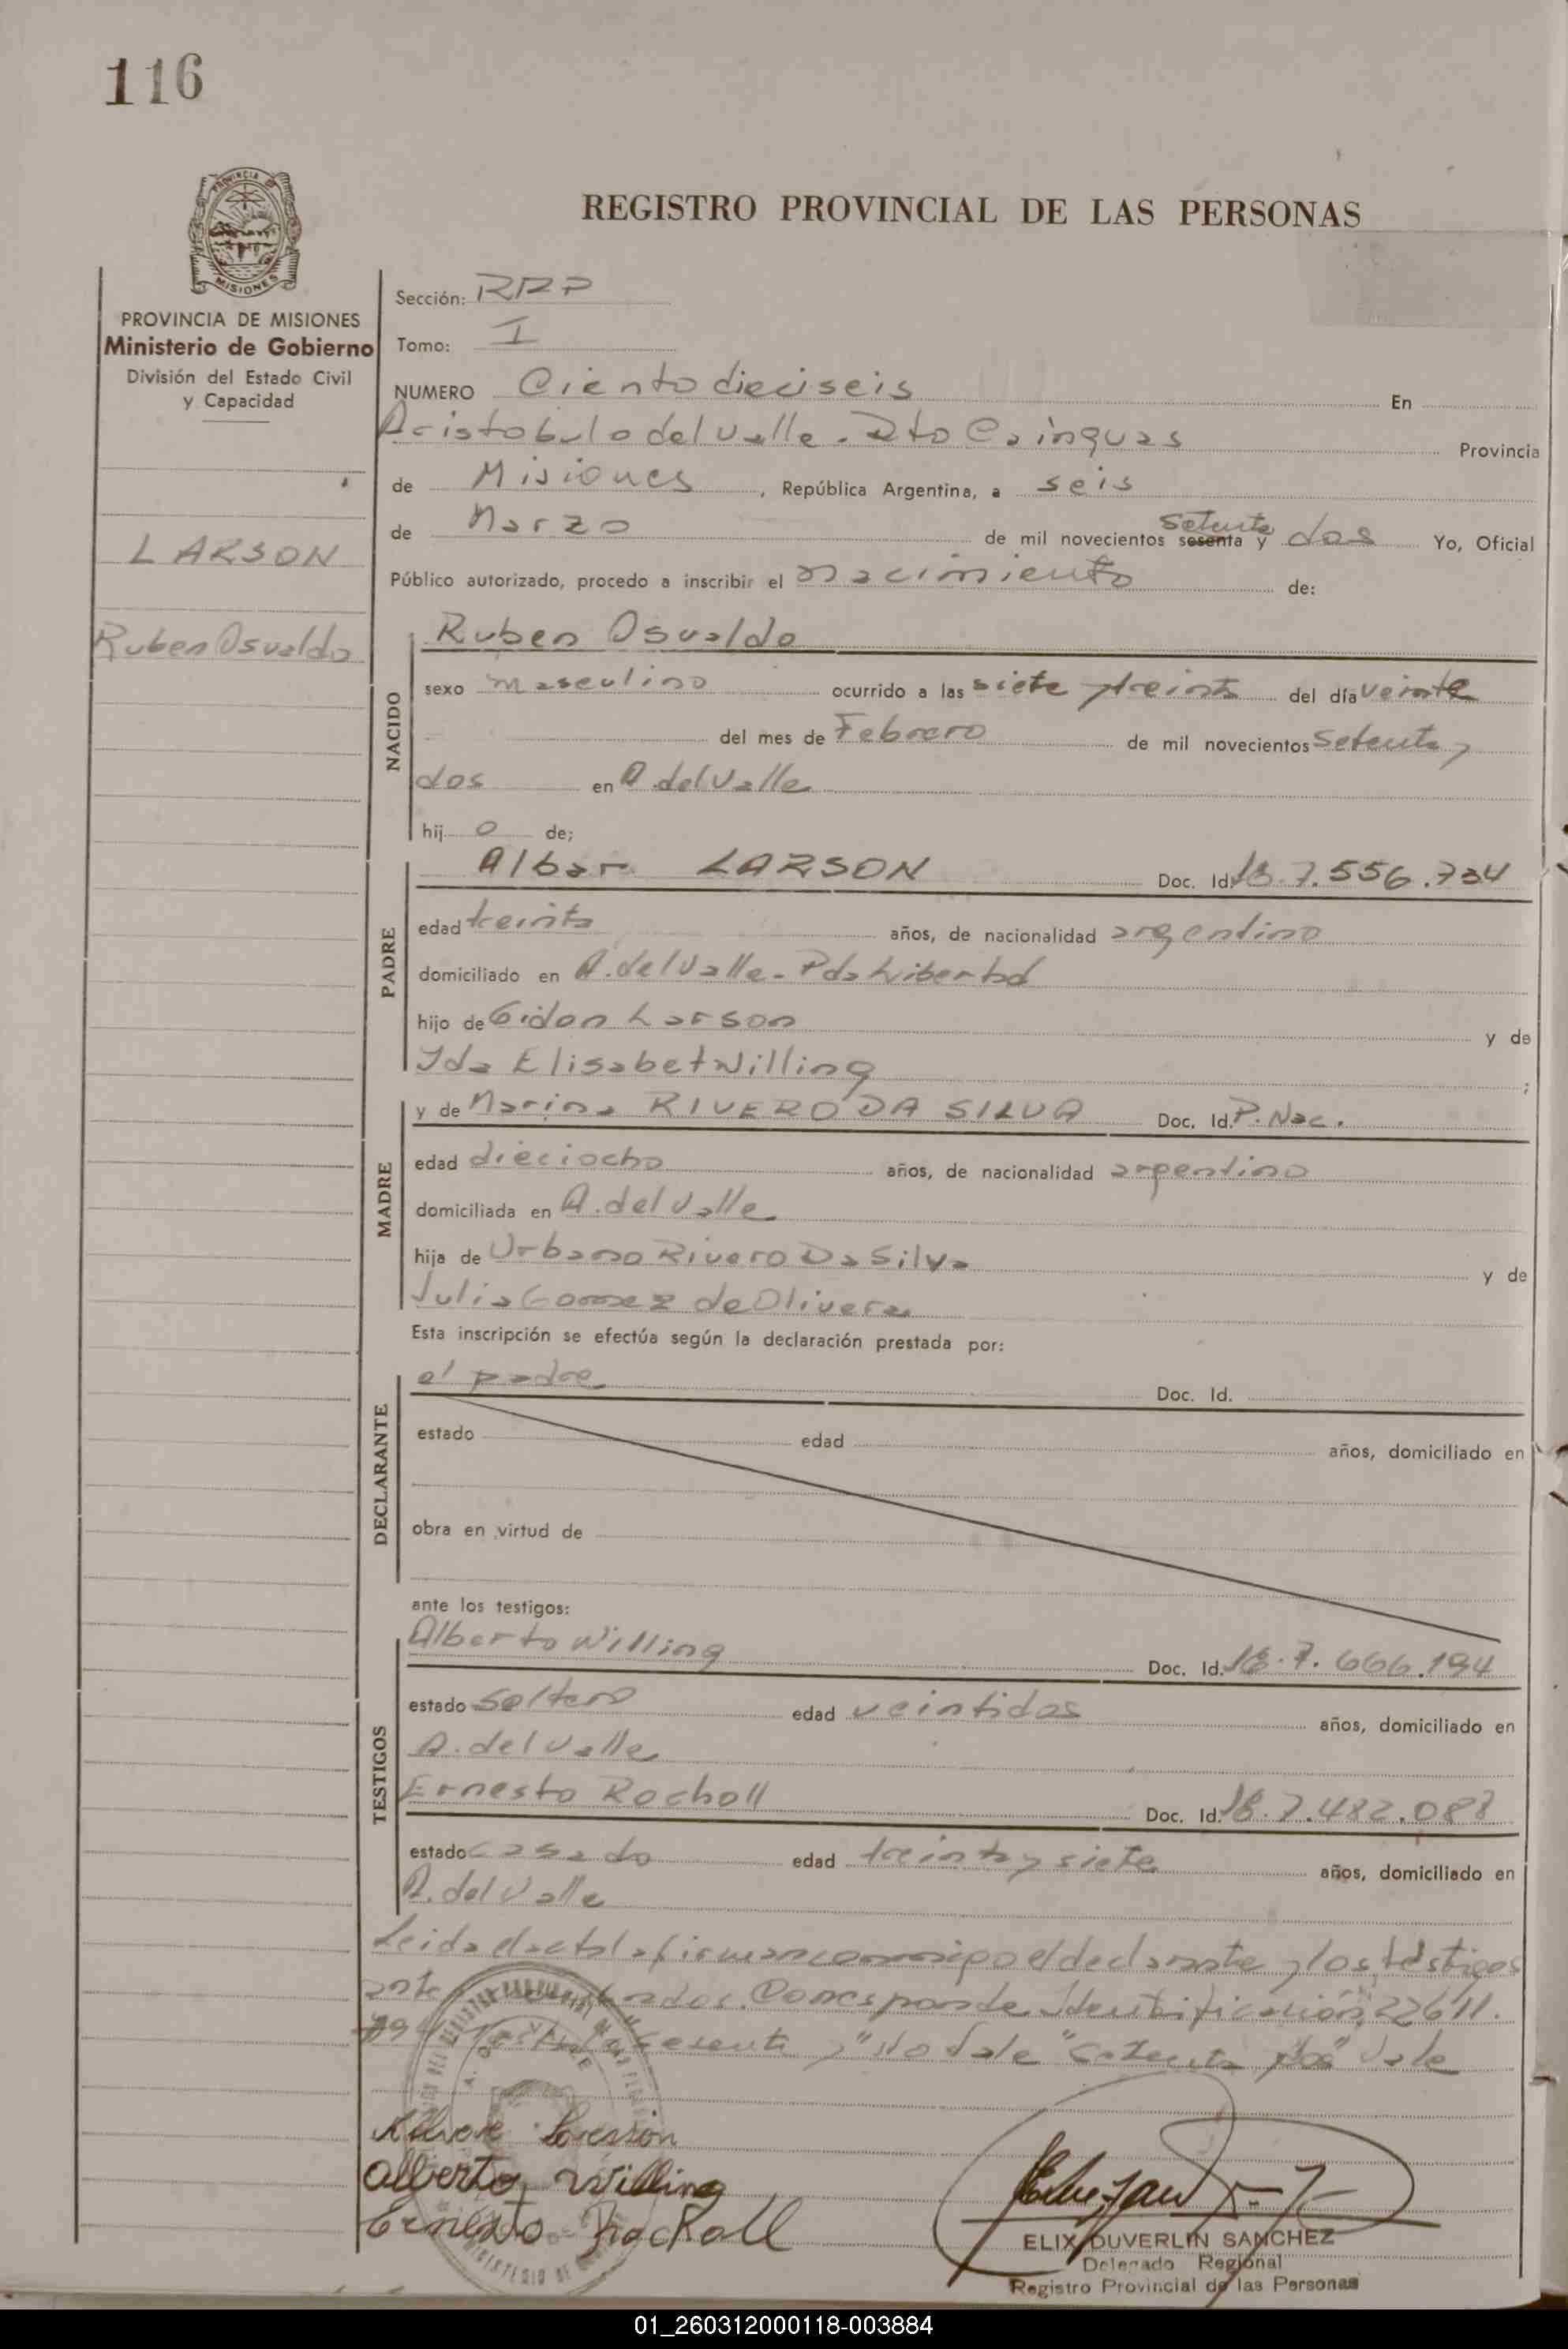 116
PROVINCIA DE MISIONES
REGISTRO PROVINCIAL DE LAS PERSONAS
PROVINCIA DE MISIONES
Ministerio de Gobierno
División del Estado Civil
y Capacidad
LARSON
Ruben Osvaldo
Sección: RPP
Tomo: I
NUMERO Ciento dieciseis En
Aristobulo del Valle. Dto Cainguas Provincia
de Misiones, República Argentina, a seis
de Marzo de mil novecientos sesenta y setenta dos Yo, Oficial
Público autorizado, procedo a inscribir el nacimiento de:
NACIDO
Ruben Osvaldo
sexo masculino ocurrido a las siete y treinta del día veinte
del mes de Febrero de mil novecientos setenta y
dos en A. del Valle
hij o de;
PADRE
Albar LARSON Doc. Id. 7.556.734
edad treinta años, de nacionalidad argentino
domiciliado en A. del Valle - Pda Libertad
hijo de Gidon Larson y de
Ida Elisabet Willing ;
MADRE
y de Marina RIVERO DA SILVA Doc. Id. P. Nac.
edad dieciocho años, de nacionalidad argentino
domiciliada en A. del Valle
hija de Urbano Rivero Da Silva y de
Julia Gomez de Olivera
Esta inscripción se efectúa según la declaración prestada por:
DECLARANTE
el padre Doc. Id.
estado edad años, domiciliado en
obra en virtud de
ante los testigos:
TESTIGOS
Alberto Willing Doc. Id. 7.666.194
estado soltero edad veintidos años, domiciliado en
A. del Valle
Ernesto Rocholl Doc. Id. 7.482.088
estado casado edad treinta y siete años, domiciliado en
A. del Valle
Leida el acta la firman conmigo el declarante y los testigos
ante nombrados. Corresponde Identificación 22611.
sesenta y "No Vale "setenta y dos" Vale
Alberto Willing
Ernesto Rocholl
ELIX DUVERLIN SANCHEZ
Delegado Regional
Registro Provincial de las Personas
01_260312000118-003884